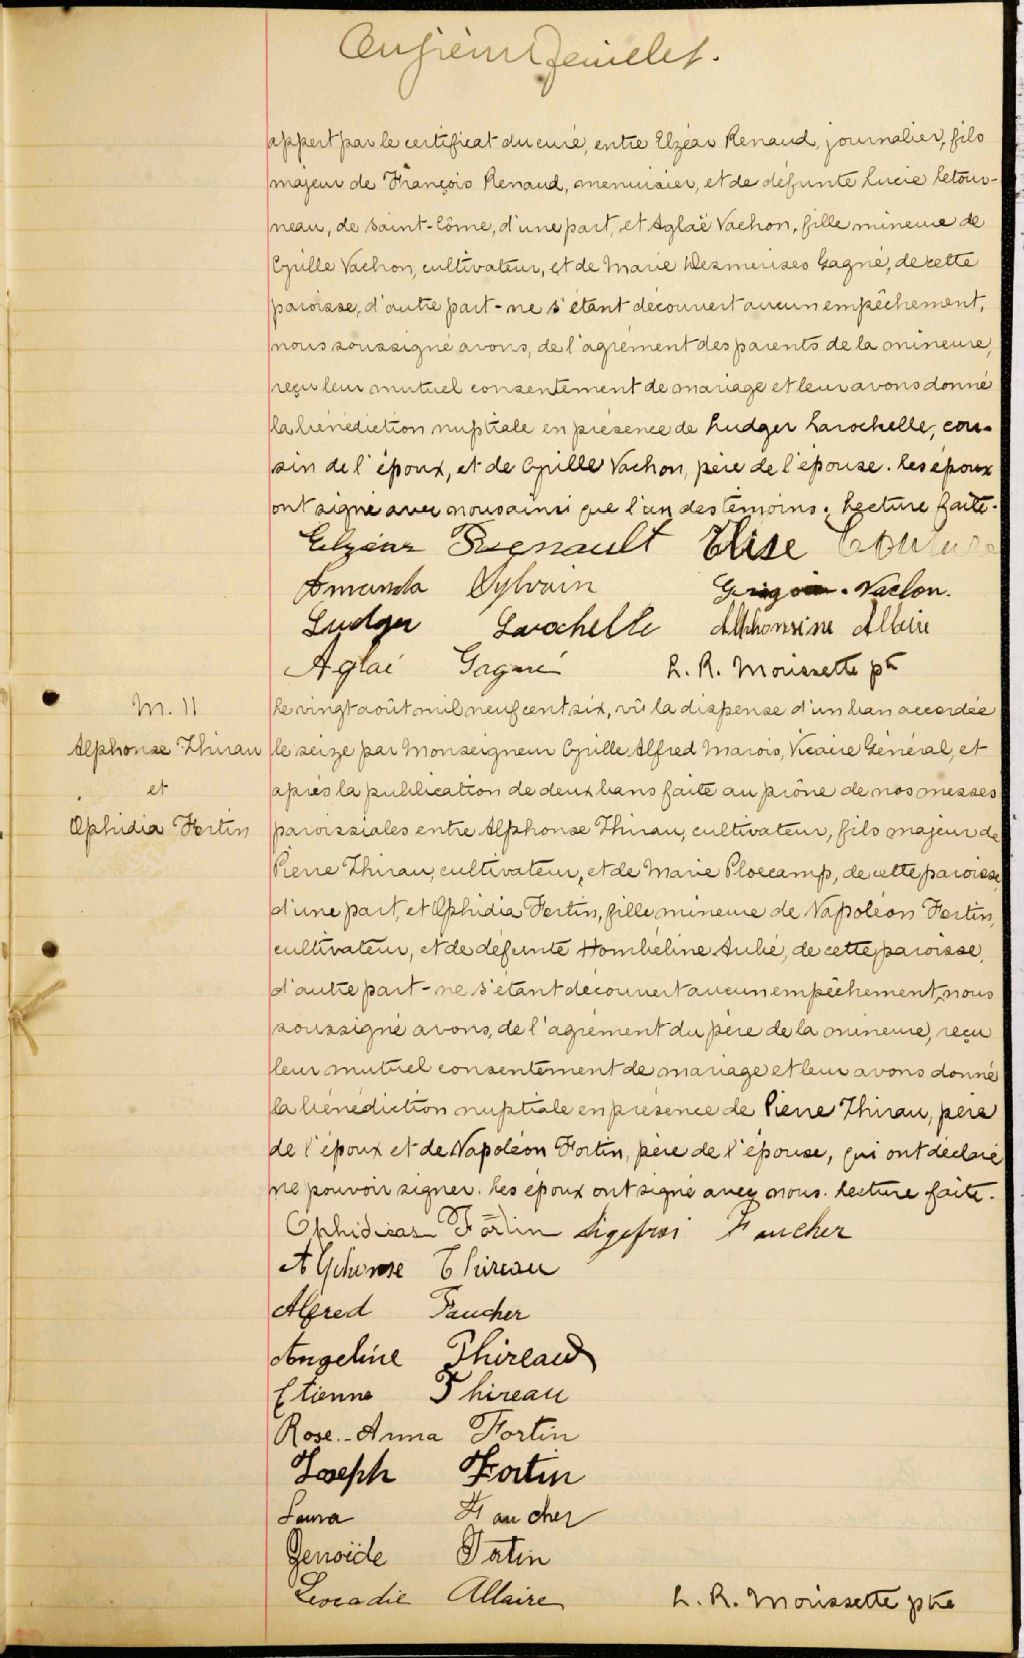 Onzième feuillet.
appert par le certificat du curé, entre Elzéar Renaud, journalier, fils
majeur de François Renaud, menuisier, et de défunte Lucie Letour-
neau, de Saint-Côme, d'une part, et Aglaë Vachon, fille mineure de
Cyrille Vachon, cultivateur, et de Marie Desmerises Gagné, de cette
paroisse, d'autre part - ne s'étant découvert aucun empêchement,
nous soussigné avons, de l'agrément des parents de la mineure,
reçu leur mutuel consentement de mariage et leur avons donné
la bénédiction nuptiale en présence de Ludger Larochelle, cou-
sin de l'époux, et de Cyrille Vachon, père de l'épouse. Les époux
ont signé avec nous ainsi que l'un des témoins. Lecture faite.
Elzéar Regnault Elise Couture
Amanda Sylvain Grégoire Vachon.
Ludger Larochelle Alphonsine Allaire
Aglaé Gagné L. R. Morissette ptre
M. 11
Alphonse Thirau
et
Ophidia Fortin
Le vingt août mil neuf cent six, vû la dispense d'un ban accordée
le seize par Monseigneur Cyrille Alfred Marois, Vicaire Général, et
après la publication de deux bans faite au prône de nos messes
paroissiales entre Alphonse Thirau, cultivateur, fils majeur de
Pierre Thirau, cultivateur, et de Marie Ploecamp, de cette paroisse,
d'une part, et Ophidia Fortin, fille mineure de Napoléon Fortin,
cultivateur, et de défunte Hombéline Aubé, de cette paroisse,
d'autre part - ne s'étant découvert aucun empêchement, nous
soussigné avons, de l'agrément du père de la mineure, reçu
leur mutuel consentement de mariage et leur avons donné
la bénédiction nuptiale en présence de Pierre Thirau, père
de l'époux et de Napoléon Fortin, père de l'épouse, qui ont déclaré
ne pouvoir signer. Les époux ont signé avec nous. Lecture faite.
Ophidias Fortin Sigefroi Faucher
Alphonse Thireau
Alfred Faucher
Angeline Thireau
Etienne Thireau
Rose-Anna Fortin
Joseph Fortin
Laura Faucher
Zenoïde Fortin
Léocadie Allaire L. R. Morissette ptre